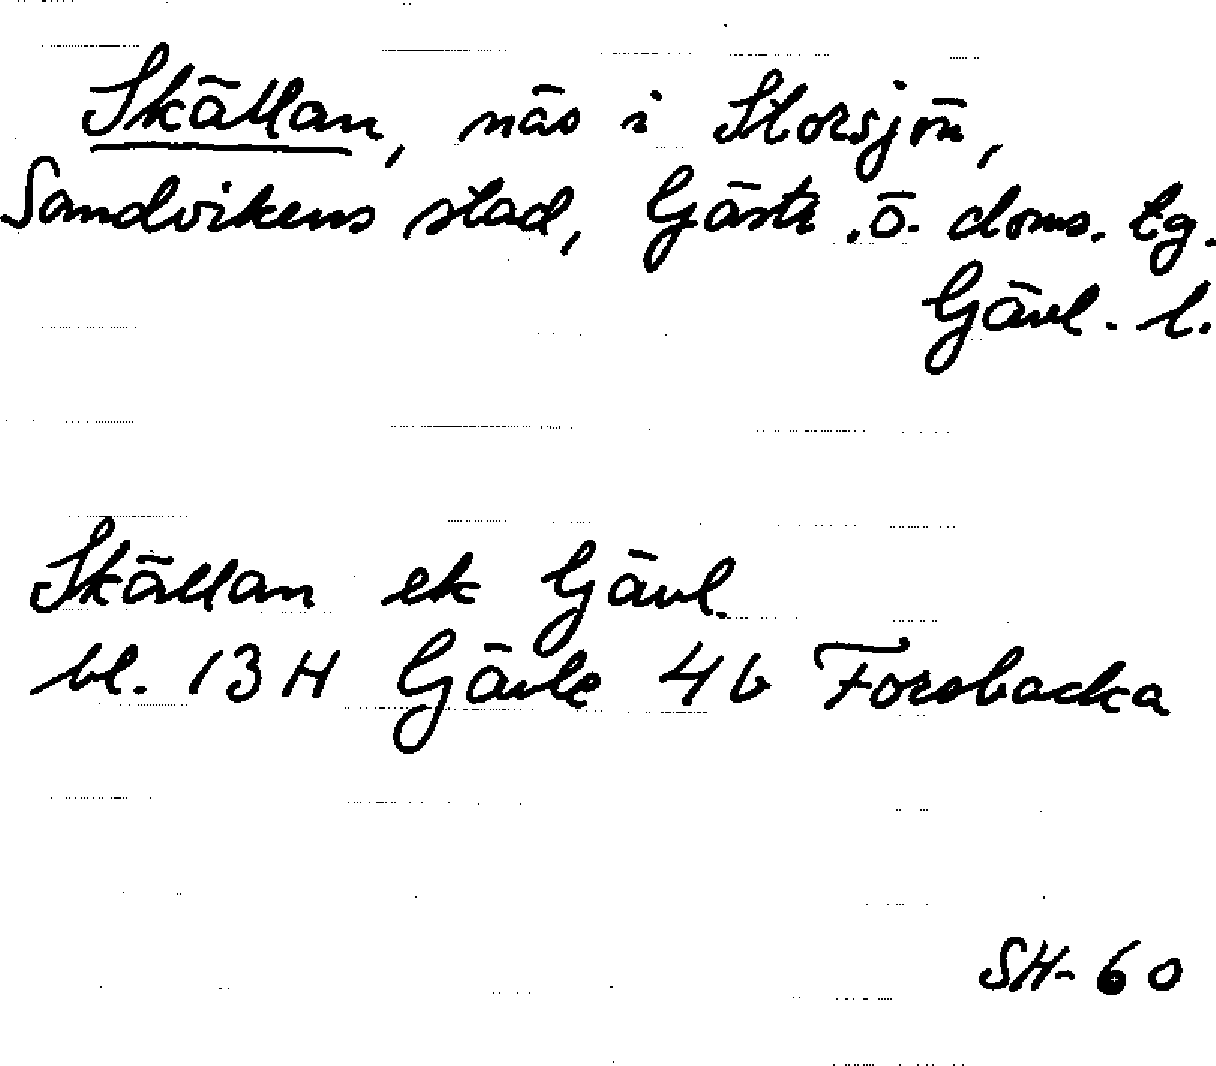 Skällan, näs i Storsjön,
Sandvikens stad, Gästr. ö. doms. tg.
Gävl. l.
Skällan ek Gävl.
bl. 13 H Gävle 4 b Forsbacka
SH-60